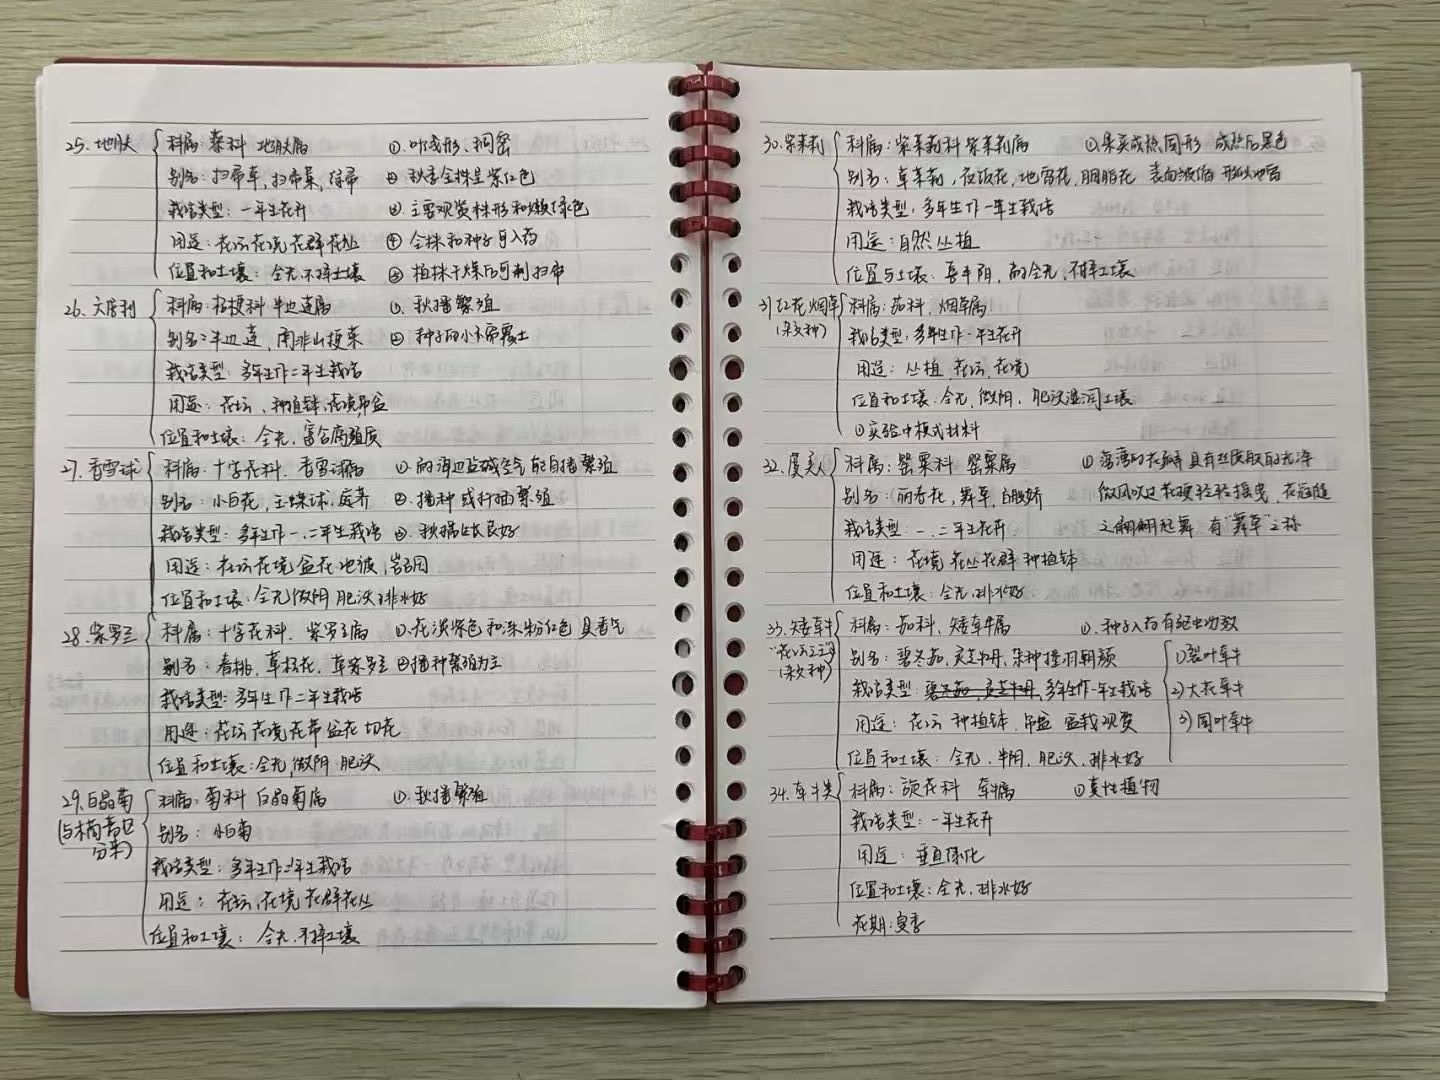 25.地肤 科属：藜科 地肤属 ①.叶线形、稠密
别名：扫帚草，扫帚菜，绿帚 ②秋季全株呈紫红色
栽培类型：一年生花卉 ③.主要观赏株形和嫩绿色
用途：花坛花境花群花丛 ④全株和种子可入药
位置和土壤：全光.不择土壤 ⑤植株干燥后可制扫帚
26.六倍利 科属：桔梗科 半边莲属 ①.秋播繁殖
别名：半边莲，南非山梗菜 ②种子的小不需覆土
栽培类型：多年生作二年生栽培
用途：花坛，种植钵，花境吊盆
位置和土壤：全光，富含腐殖质
27.香雪球 科属：十字花科.香雪球属 ①.耐海边盐碱空气能自播繁殖
别名：小白花，玉蝶球，庭荠 ②.播种或扦插繁殖
栽培类型：多年生作一.二年生栽培 ③.秋播生长良好
用途：花坛花境盆花地被，岩石园
位置和土壤：全光微阴 肥沃排水好
28.紫罗兰 科属：十字花科.紫罗兰属 ①.花淡紫色和深粉红色 具香气
别名：春桃，草桂花，草紫罗兰 ②播种繁殖为主
栽培类型：多年生作二年生栽培
用途：花坛花境花带盆花切花
位置和土壤：全光，微阴 肥沃
29.白晶菊 科属：菊科 白晶菊属 ①.秋播繁殖
(与木茼蒿区 别名：小白菊
分开) 栽培类型：多年生作二年生栽培
用途：花坛，花境花群花丛
位置和土壤：全光.不择土壤
30.紫茉莉 科属：紫茉莉科 紫茉莉属 ①果实成熟圆形 成熟后黑色
别名：草茉莉，夜饭花，地雷花，胭脂花 表面皱缩 形似地雷
栽培类型：多年生作一年生栽培
用途：自然丛植
位置与土壤：喜半阴，耐全光，不择土壤
31.红花烟草 科属：茄科，烟草属
(杂交种) 栽培类型：多年生作一年生花卉
用途：丛植，花坛，花境
位置和土壤：全光，微阴，肥沃湿润土壤
①实验中模式材料
32.虞美人 科属：罂粟科 罂粟属 ①薄薄的花瓣具有丝质般的光泽
别名：丽春花，舞草，百般娇 微风吹过花梗轻轻摇曳，花冠随
栽培类型：一.二年生花卉 之翩翩起舞 有“舞草”之称
用途：花境 花丛花群 种植钵
位置和土壤：全光.排水好
33.矮牵牛 科属：茄科，矮牵牛属 ①.种子入药有驱虫功效
“花坛之王” 别名：碧冬茄，灵芝牡丹，杂种撞羽朝颜 1)裂叶牵牛
(杂交种) 栽培类型：碧冬茄，灵芝牡丹，多年生作一年生栽培 2)大花牵牛
用途：花坛 种植钵，吊盆 盆栽观赏 3)圆叶牵牛
位置和土壤：全光，半阴，肥沃，排水好
34.牵牛类 科属：旋花科 牵牛属 ①蔓性植物
栽培类型：一年生花卉
用途：垂直绿化
位置和土壤：全光.排水好
花期：夏季